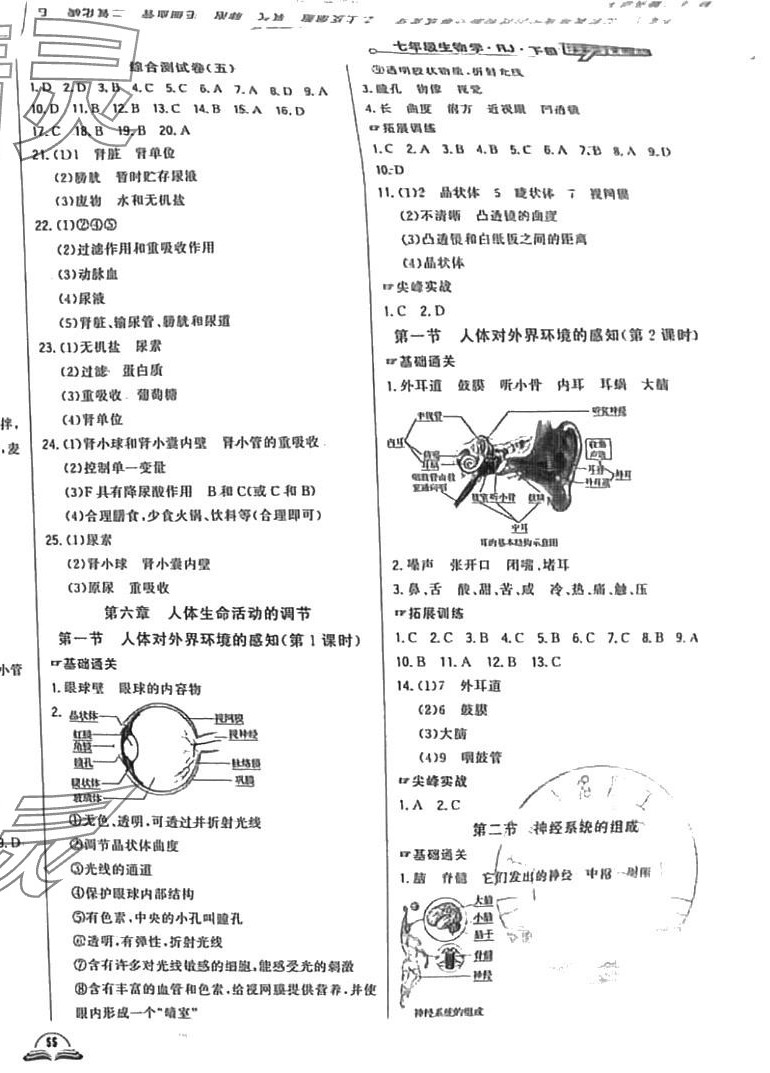 七年级生物学·RJ·下册
综合测试卷(五)
1. D 2. D 3. B 4. C 5. C 6. A 7. A 8. D 9. A
10. D 11. B 12. B 13. C 14. B 15. A 16. D
17. C 18. B 19. B 20. A
21. (1)1 肾脏 肾单位
(2)膀胱 暂时贮存尿液
(3)废物 水和无机盐
22. (1)②④⑤
(2)过滤作用和重吸收作用
(3)动脉血
(4)尿液
(5)肾脏、输尿管、膀胱和尿道
23. (1)无机盐 尿素
(2)过滤 蛋白质
(3)重吸收 葡萄糖
(4)肾单位
24. (1)肾小球和肾小囊内壁 肾小管的重吸收
(2)控制单一变量
(3)F 具有降尿酸作用 B和C(或C和B)
(4)合理膳食,少食火锅、饮料等(合理即可)
25. (1)尿素
(2)肾小球 肾小囊内壁
(3)原尿 重吸收
第六章 人体生命活动的调节
第一节 人体对外界环境的感知(第1课时)
☞基础通关
1. 眼球壁 眼球的内容物
2.
晶状体
虹膜
角膜
瞳孔
睫状体
玻璃体
视网膜
视神经
脉络膜
巩膜
①无色、透明,可透过并折射光线
②调节晶状体曲度
③光线的通道
④保护眼球内部结构
⑤有色素,中央的小孔叫瞳孔
⑥透明,有弹性,折射光线
⑦含有许多对光线敏感的细胞,能感受光的刺激
⑧含有丰富的血管和色素,给视网膜提供营养,并使
眼内形成一个“暗室”
55
⑨透明胶状物质,折射光线
3. 瞳孔 物像 视觉
4. 长 曲度 前方 近视眼 凹透镜
☞拓展训练
1. C 2. A 3. B 4. B 5. C 6. A 7. B 8. A 9. D
10. D
11. (1)2 晶状体 5 睫状体 7 视网膜
(2)不清晰 凸透镜的曲度
(3)凸透镜和白纸板之间的距离
(4)晶状体
☞尖峰实战
1. C 2. D
第一节 人体对外界环境的感知(第2课时)
☞基础通关
1. 外耳道 鼓膜 听小骨 内耳 耳蜗 大脑
半规管
听觉神经
内耳
前庭
耳蜗
收集
声波
耳廓
外耳道
外耳
听小骨
鼓膜
中耳
耳的基本结构示意图
2. 噪声 张开口 闭嘴、堵耳
3. 鼻、舌 酸、甜、苦、咸 冷、热、痛、触、压
☞拓展训练
1. C 2. C 3. B 4. C 5. B 6. C 7. C 8. B 9. A
10. B 11. A 12. B 13. C
14. (1)7 外耳道
(2)6 鼓膜
(3)大脑
(4)9 咽鼓管
☞尖峰实战
1. A 2. C
第二节 神经系统的组成
☞基础通关
1. 脑 脊髓 它们发出的神经 中枢 周围
大脑
小脑
脑干
脊髓
神经
神经系统的组成